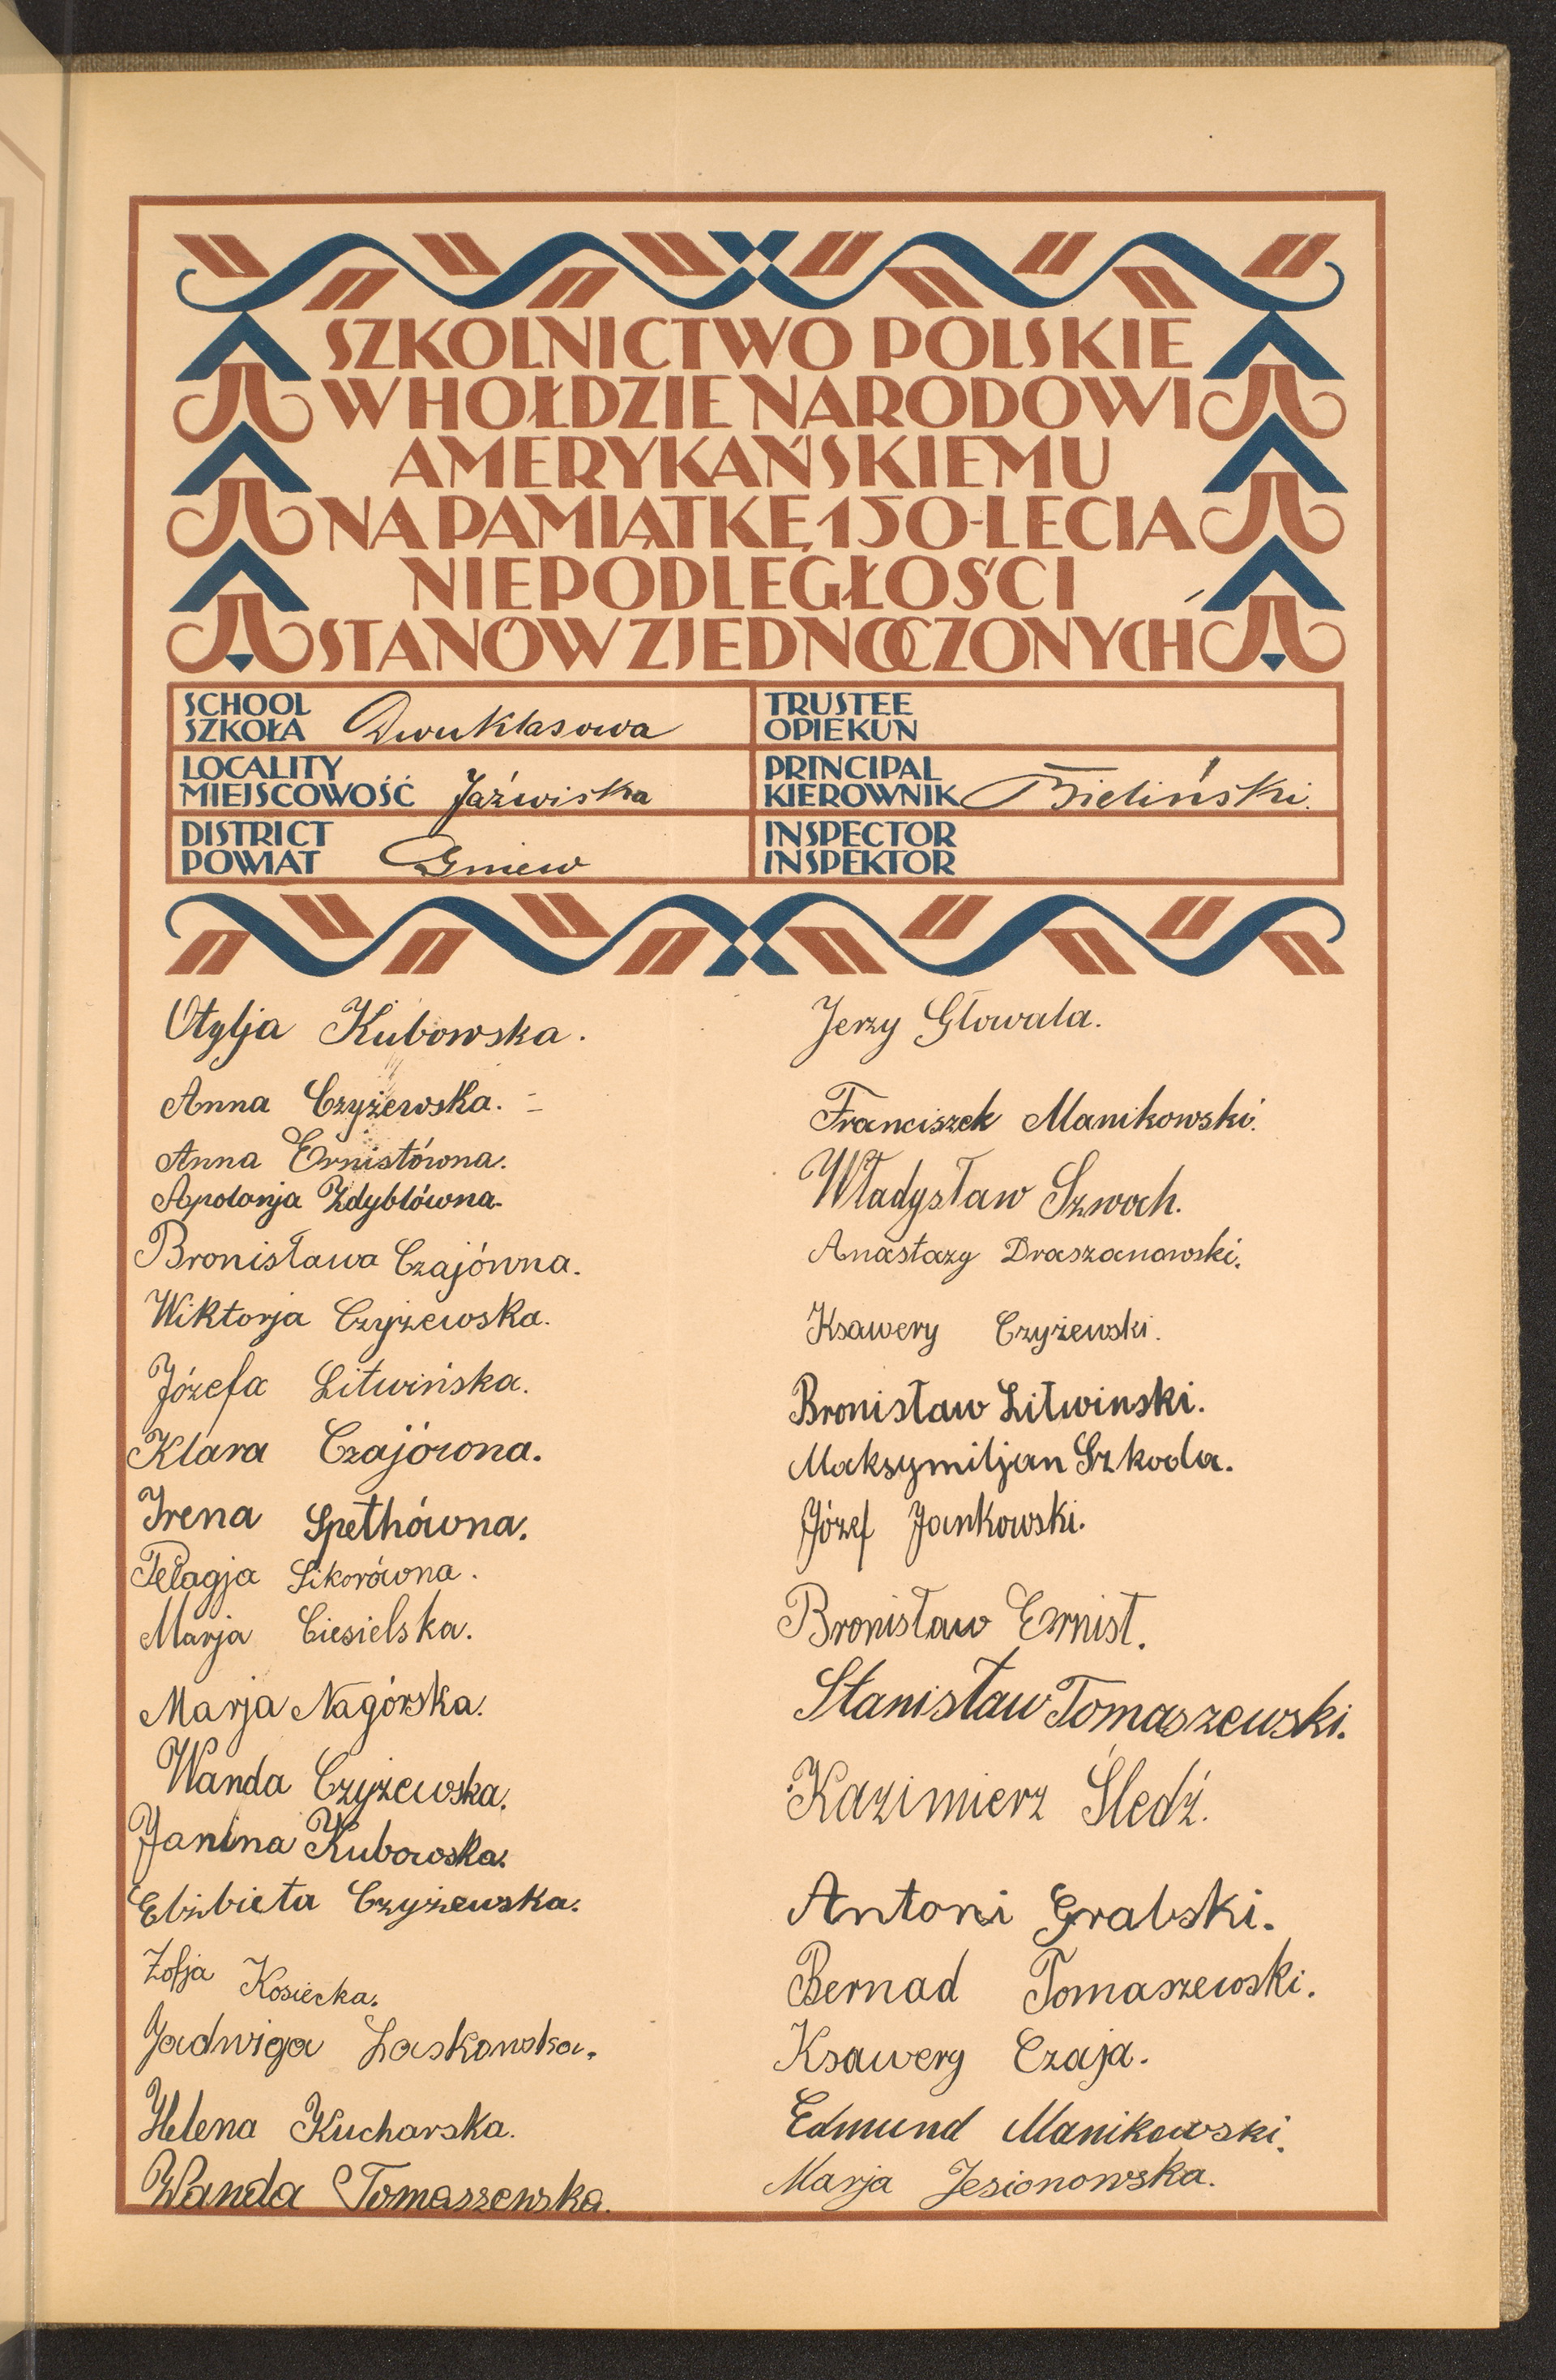 SZKOLNICTWO POLSKIE
W HOŁDZIE NARODOWI
AMERYKAŃSKIEMU
NA PAMIĄTKĘ 150-LECIA
NIEPODLEGŁOŚCI
STANÓW ZJEDNOCZONYCH
SCHOOL
SZKOŁA Dwuklasowa
TRUSTEE
OPIEKUN
LOCALITY
MIEJSCOWOŚĆ Jaźwiska
PRINCIPAL
KIEROWNIK Bieliński.
DISTRICT
POWIAT Gniew
INSPECTOR
INSPEKTOR
Otylja Kubowska.
Anna Czyżewska.
Anna Ernistówna.
Apolonja Zdyblówna.
Bronisława Czajówna.
Wiktorja Czyżewska.
Józefa Litwińska.
Klara Czajówna.
Irena Spethówna.
Pelagja Sikorówna.
Marja Ciesielska.
Marja Nagórska.
Wanda Czyżewska.
Janina Kubowska.
Elżbieta Czyżewska.
Zofja Kosiecka.
Jadwiga Laskowska.
Helena Kucharska.
Wanda Tomaszewska.
Jerzy Głowala.
Franciszek Manikowski.
Władysław Szwoch.
Anastazy Draszanowski.
Ksawery Czyżewski.
Bronisław Litwinski.
Maksymiljan Szkoda.
Józef Jankowski.
Bronisław Ernist.
Stanisław Tomaszewski.
Kazimierz Śledź.
Antoni Grabski.
Bernad Tomaszewski.
Ksawery Czaja.
Edmund Manikowski.
Marja Jesionowska.